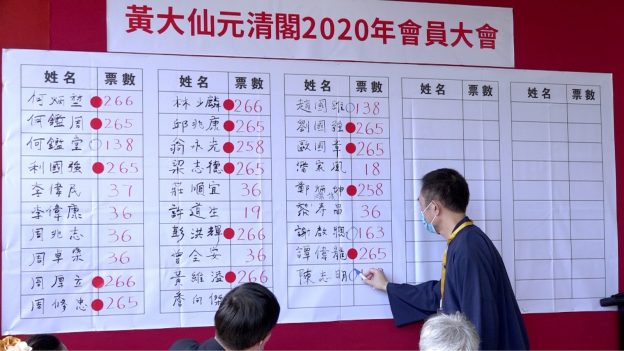 黃大仙元清閣2020年會員大會
姓名 票數
何 266
何鑑周 265
何鑑宜 138
利國強 265
李偉民 37
李偉康 36
周兆志 36
周卓榮 36
周厚立 266
周修忠 265
姓名 票數
林少麟 266
邱兆康 265
翁永光 258
梁志德 265
莊順宜 36
許道生 19
彭洪輝 266
曾全安 36
黃維溢 266
向傑
姓名 票數
趙國雄 138
劉國強 265
歐國章 265
家風 18
鄭 坤 258
黎 昌 36
謝啟聰 163
譚偉雄 265
陳志明
姓名 票數
姓名 票數